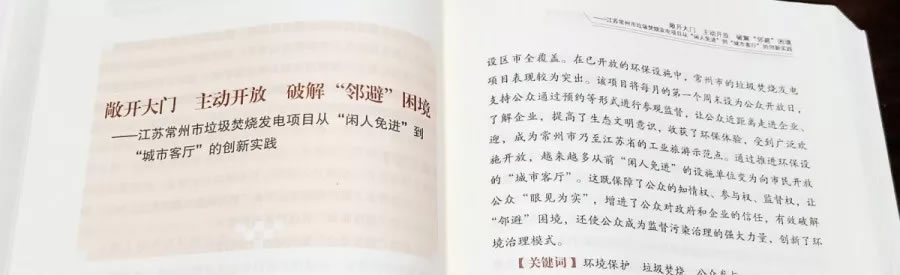 敞开大门 主动开放 破解“邻避”困境
——江苏常州市垃圾焚烧发电项目从“闲人免进”到
“城市客厅”的创新实践
敞开大门 主动开放 破解“邻避”困境
——江苏常州市垃圾焚烧发电项目从“闲人免进”到“城市客厅”的创新实践
设区市全覆盖。在已开放的环保设施中，常州市的垃圾焚烧发电
项目表现较为突出。该项目将每月的第一个周末设为公众开放日，
支持公众通过预约等形式进行参观监督，让公众近距离走进企业、
了解企业，提高了生态文明意识，收获了环保体验，受到广泛欢
迎，成为常州市乃至江苏省的工业旅游示范点。通过推进环保设
施开放，越来越多从前“闲人免进”的设施单位变为向市民开放
的“城市客厅”。这既保障了公众的知情权、参与权、监督权，让
公众“眼见为实”，增进了公众对政府和企业的信任，有效破解
“邻避”困境，还使公众成为监督污染治理的强大力量，创新了环
境治理模式。
【关键词】环境保护 垃圾焚烧 公众参与